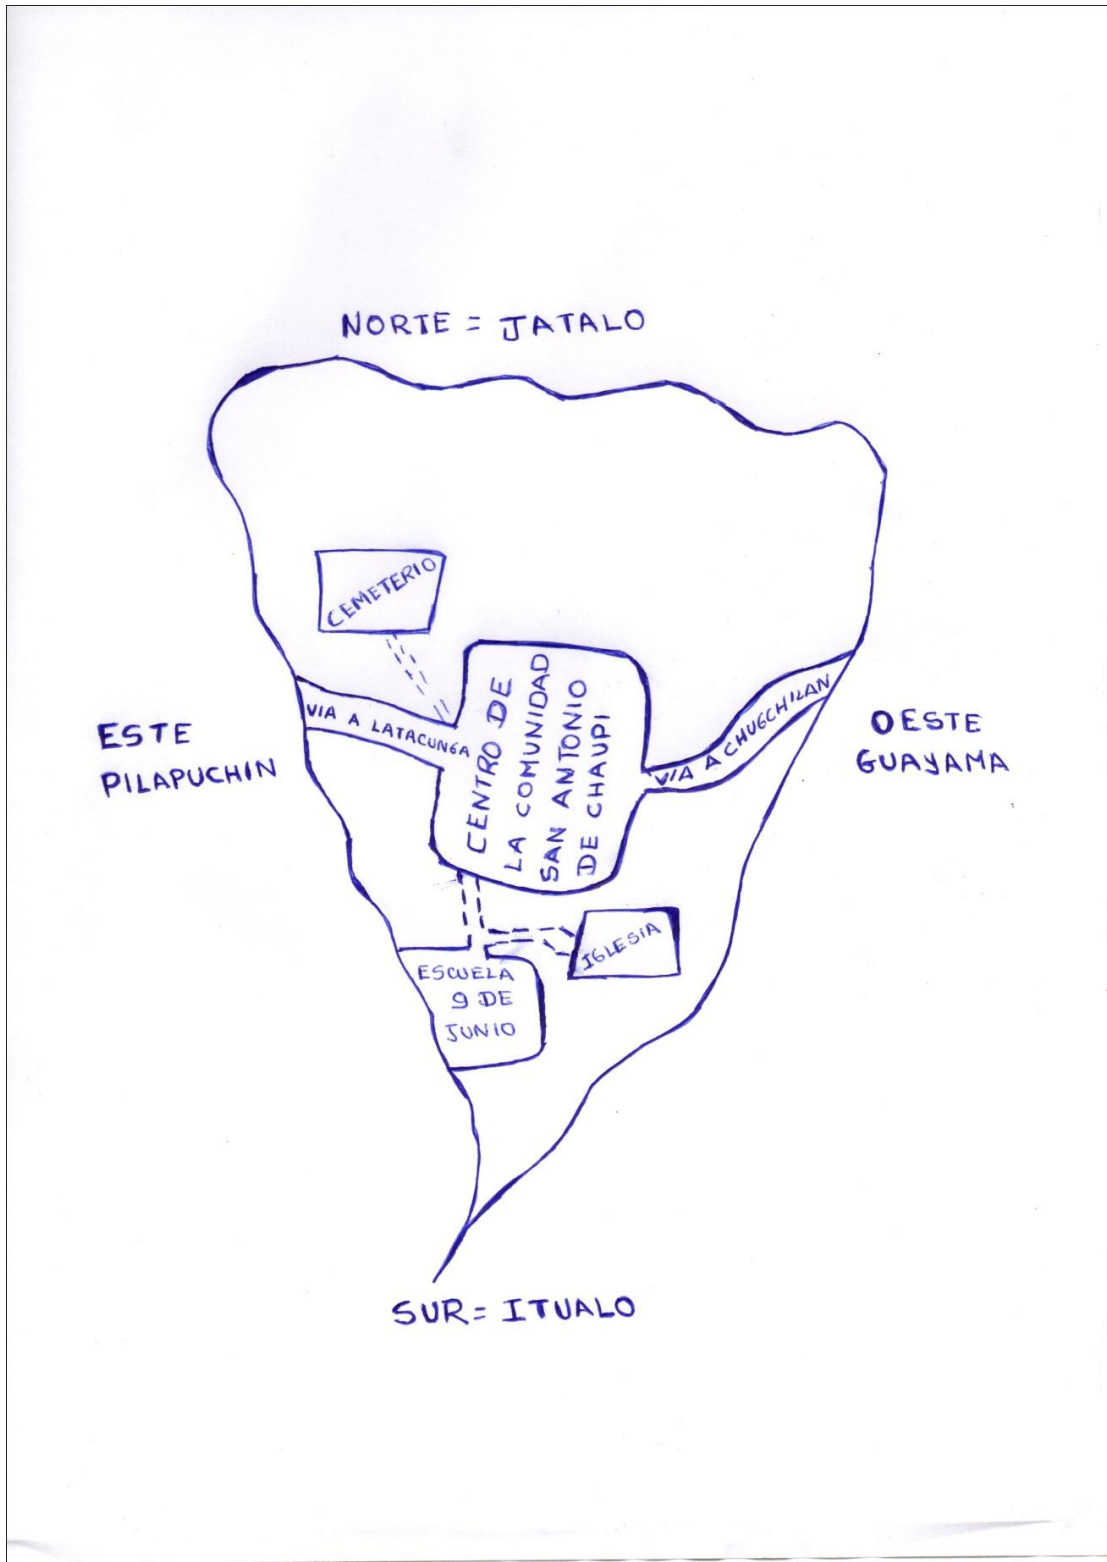 NORTE = JATALO
CEMETERIO
VIA A LATACUNGA
CENTRO DE
LA COMUNIDAD
SAN ANTONIO
DE CHAUPI
VIA A CHUGCHILAN
ESTE
PILAPUCHIN
OESTE
GUAYAMA
IGLESIA
ESCUELA
9 DE
JUNIO
SUR = ITUALO